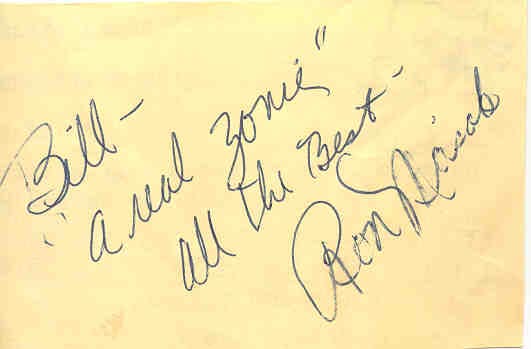 Bill-
"a real zonie"
all the Best-
Ron